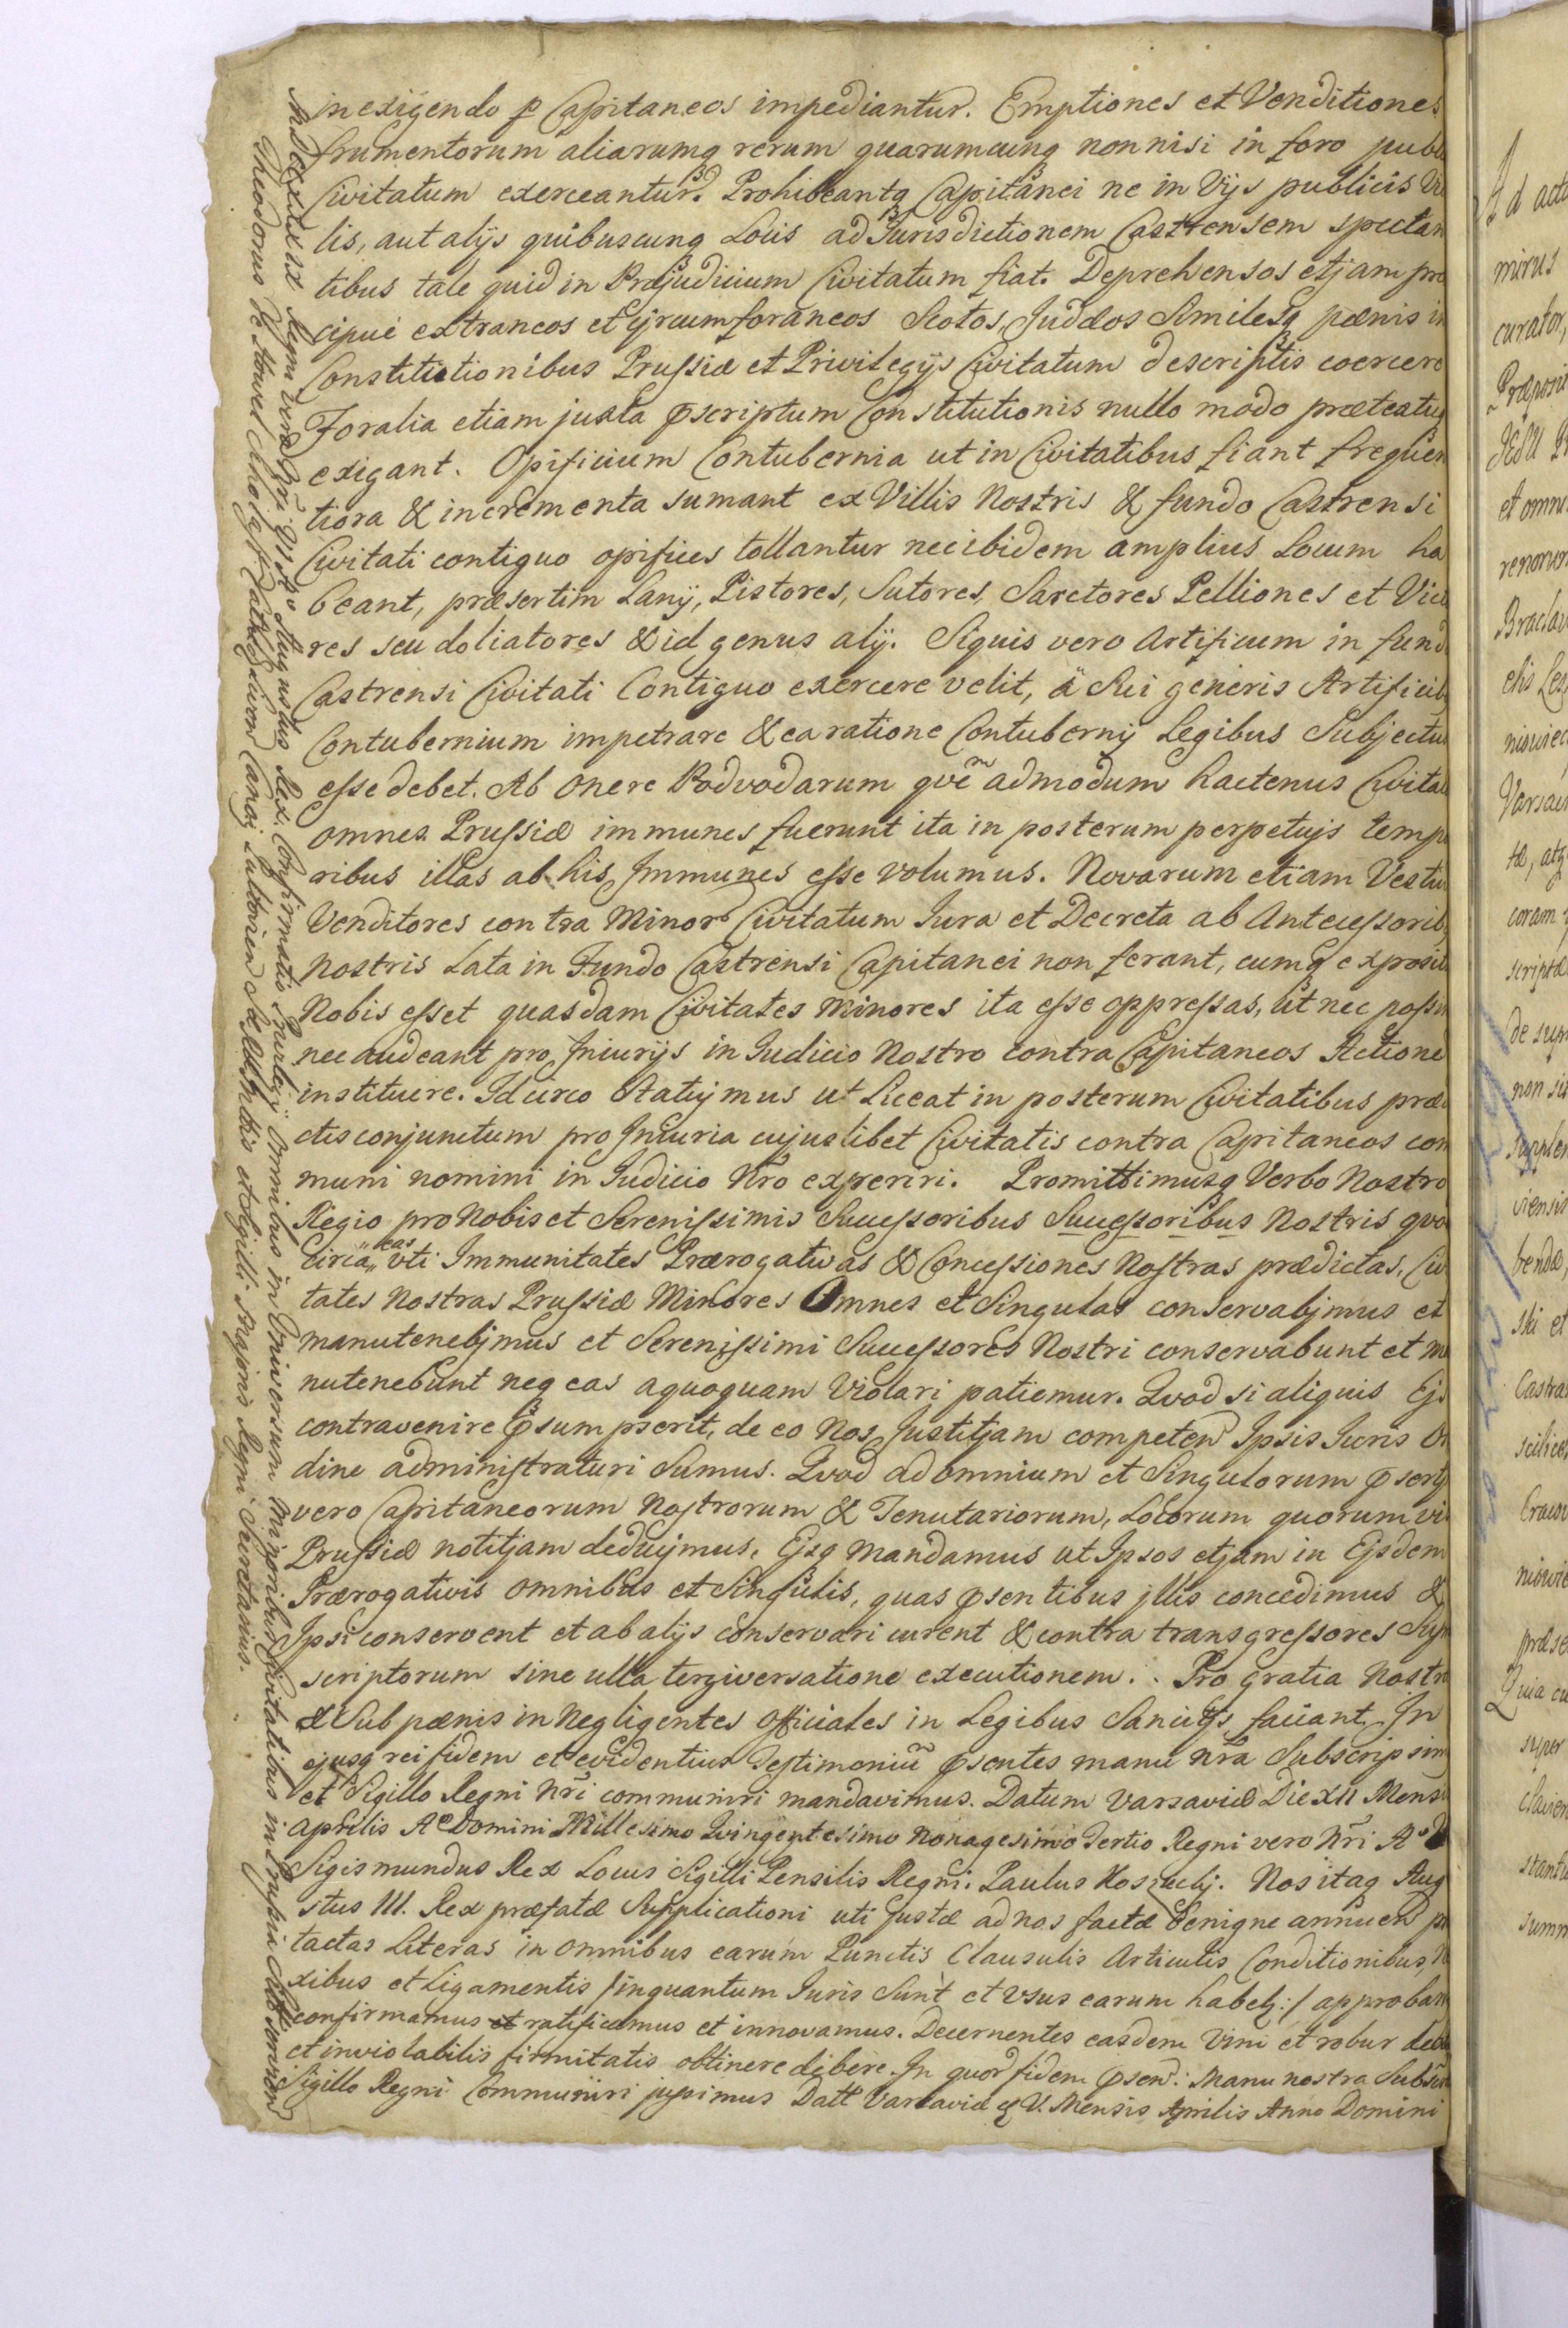 in exigendo p Capitaneos impediantur. Emptiones et Venditiones
frumentorum aliarumq rerum quarumcunq nonnisi in foro publ
Civitatum exerceantur. Prohibeantq Capitanei ne in Vijs publicis Vi
lis, aut alijs quibuscunq Locis ad Jurisdictionem Castrensem spectan
tibus tale quid in Præjudicium Civitatum fiat. Deprehensos etjam præ
cipuè extraneos et Circumforaneos Scotos, Judæos Similesq pænis in
Constitutionibus Prussiæ et Privilegijs Civitatum descriptis coercere
Foralia etiam juxta pscriptum Constitutionis nullo modo
exigant. Opificium Contubernia ut in Civitatibus fiant frequen
tiora & incrementa sumant ex Villis Nostris & fundo Castrensi
Civitati contiguo opifices tollantur nec ibidem amplius Locum ha
beant, præsertim Lanij, Pistores, Sutores, Sarctores Pelliones et Vic
res seu doliatores & id genus alij. Siquis vero Artificum in fund
Castrensi Civitati Contiguo exercere velit, à Sui generis Artificib
Contubernium impetrare & ea ratione Contubernij Legibus Subjectus
esse debet. Ab onere Podvodarum quē admodum hactenus Civita
omnes Prussiæ immunes fuerunt ita in posterum perpetujs temp
oribus illas ab his Immunes esse volumus. Novarum etiam Vestiu
Venditores contra Minor Civitatum Jura et Decreta ab Antecessorib
Nostris Lata in Fundo Castrensi Capitanei non ferant, cumq exposit
Nobis esset quasdam Civitates minores ita esse oppressas, ut nec possin
nec audeant pro Injurijs in Judicio Nostro contra Capitaneos Actione
instituere. Idcirco Statuymus ut Liceat in posterum Civitatibus præd
ctis conjunctum pro Injuria cujuslibet Civitatis contra Capitaneos com
muni nomini in Judicio Nr̃o expreriri. Promittimusq Verbo Nostro
Regio pro Nobis et Serenissimis Successoribus Successoribus Nostris quo
circa eas uti Immunitates Prærogativas & Concessiones Nostras prædictas, Civ
tates Nostras Prussiæ Minores Omnes et Singulas conservabjmus et
manutenebjmus et Serenissimi Successores Nostri conservabunt et ma
nutenebunt neq eas aquoquam Violari patiemur. Quod si aliquis Ejs
contravenire psumpserit, de eo Nos Justitjam competen Ipsis Juris Or
dine administraturi Sumus. Quod ad omnium et Singulorum psert
vero Capitaneorum Nostrorum & Tenutariorum, Locorum quorumvi
Prussiæ notitjam deducjmus, Ejsq mandamus ut Ipsos etjam in Ejsdem
Prærogativis omnibus et Singulis, quas psentibus jllis concedimus &
Ipsi conservent et ab alijs conservari curent & contra transgressores Sup
scriptorum sine ulla tergiversatione executionem. Pro gratia Nostra
& Sub pænis in Negligentes Officiales in Legibus Sancitis faciant. In
ejusq rei fidem et evidentius Testimoniū psentes manu nr̃a Subscripsim
et Sigillo Regni Nr̃i communiri mandavimus. Datum Varsaviæ Die XII Mensi
Aprilis Aō Domini Millesimo Quingentesimo Nonagesimo Tertio Regni vero Nr̃i Aō
Sigismundus Rex Locus Sigilli Pensilis Regni. Paulus . Nos itaq Aug
stus III. Rex præfatæ Supplicationi uti Justæ ad nos factæ Benigne annuen
tactas Literas in omnibus earum Punctis Clausulis Articulis Conditionibus, N
xibus et Ligamentis /inquantum Juris Sunt et Usus earum habetq:/ approbam
confirmamus et ratificamus et innovamus. Decernentes easdem Vim et robur deb
et inviolabilis firmitatis obtinere debere. In quor fidem psen: Manu nostra Subsc
Sigillo Regni Communiri jussimus Datt Varsaviæ V. Mensis Aprilis Anno Domini
Regni vero Nr̃i Augustus Rex. Confirmatio Privilegij omnibus in Universum Minoribus Civitatibus in Prussia
Theodorus de et Sigilli Majoris Regni Secretarius.
Ad acta
mirus
curator,
Præposit
et omni
renorum
Braclav
elis
Varsav
tæ, atq
coram
scriptæ
de
non
viensis
bendæ,
ski et
Castra
scilicet
Cracov
præse
Quia cu
super
clavien
stantia
summ